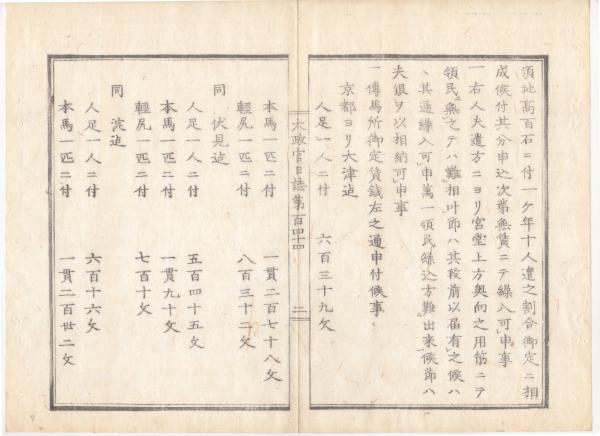 領地高百石ニ付一ケ年十人遣之割合御定ニ相
成候付其分申込次第無賃ニテ繰入可申事
一右人夫遣方ニヨリ宮堂上方奥向之用筋ニテ
領民無之テハ難相叶節ハ其段前以届有之候ハ
ヽ其通繰入可申萬一領民繰込方難出来候節ハ
夫銀ヲ以相納可申事
一傳馬所御定賃銭左之通申付候事
京都ヨリ大津迠
人足一人ニ付 六百三十九文
太政官日誌第百四十四 二
本馬一匹ニ付 一貫二百七十八文
軽尻一匹ニ付 八百三十二文
同 伏見迠
人足一人ニ付 五百四十五文
本馬一匹ニ付 一貫九十文
輕尻一匹ニ付 七百十文
同 淀迠
人足一人ニ付 六百十六文
本馬一匹ニ付 一貫二百丗二文